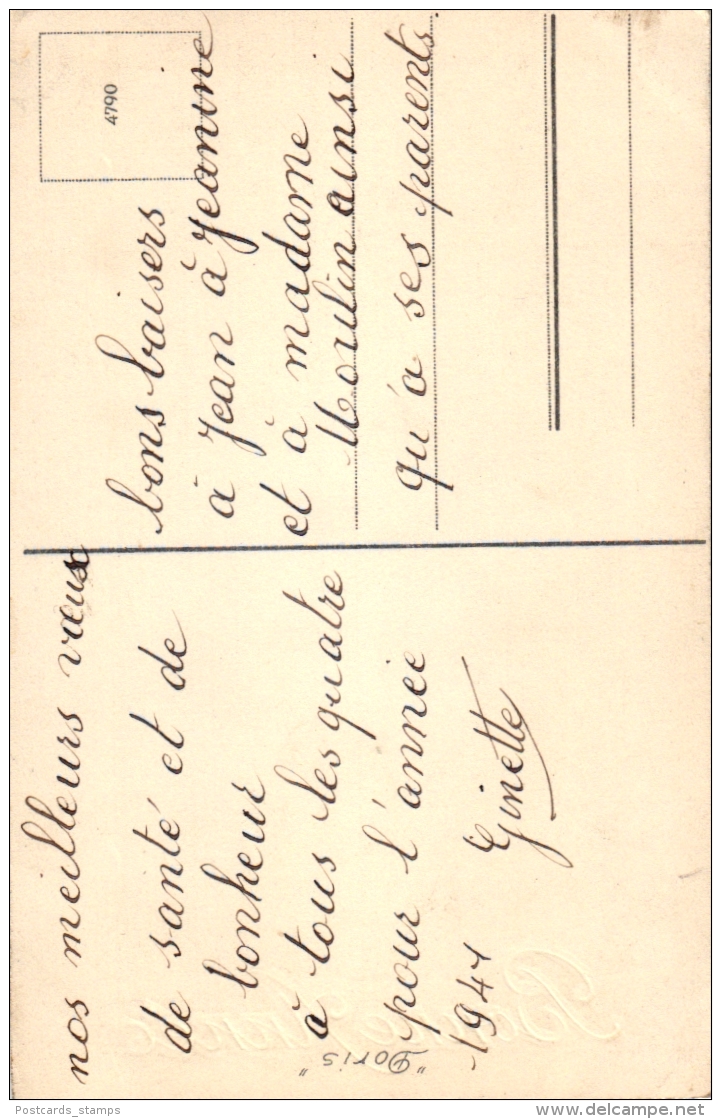 nos meilleurs vœux
de santé et de
de bonheur
à tous les quatre
pour l'année
1941
Ginette
"Doris"
Bonne Année
4790
bons baisers
à Jean à Jeanine
et à madame
Moulin ainsi
qu'a ses parents
Postcards_stamps
delcampe.net